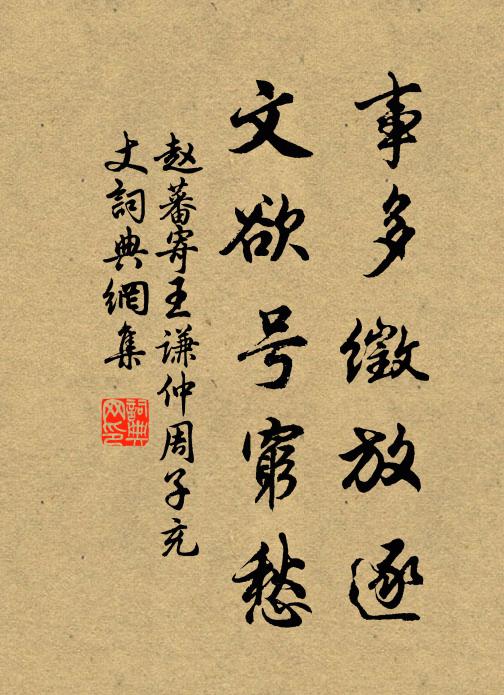 事多徵放逐
文欲号窮愁
赵蕃寄王谦仲周子充
丈詞典網集
詞典
网印